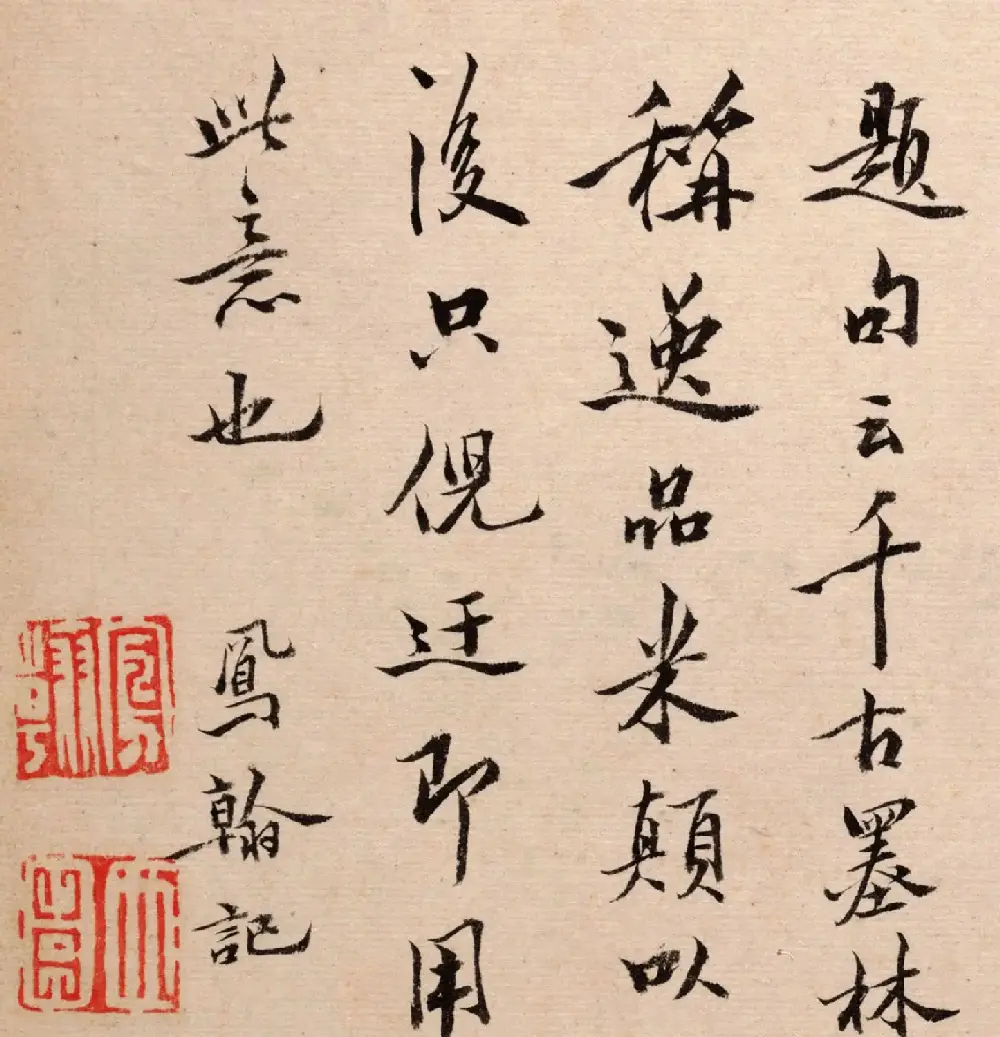 題句云千古墨林
稱逸品米顛以
後只倪迂即用
此意也 鳳翰記